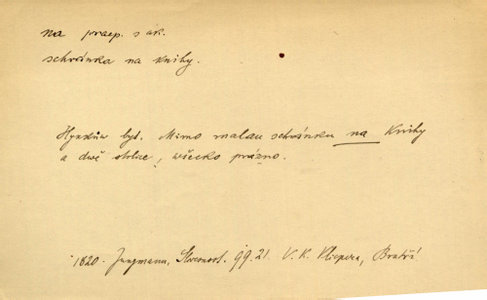 na praep. s ak.
schránka na knihy.
Hynkůw byt. Mimo malau schránku na knihy
a dwě stolice, wšecko prázno.
1820. Jungmann, Slowesnost. 99.21 V. K. Klicpera, Bratří